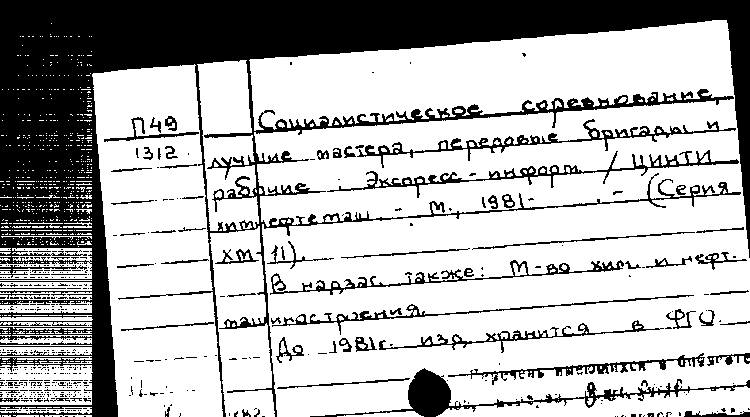 П49
1312
Социалистическое соревнование,
лучшие мастера, передовые бригады и
рабочие : Экспресс-информ. / ЦИНТИ
химнефтемаш. - М., 1981- . - (Серия
ХМ-11).
В надзаг. также: М-во хим. и нефт.
машиностроения.
До 1981г. изд. хранится в ФГО.
Перечень имеющихся в библиоте